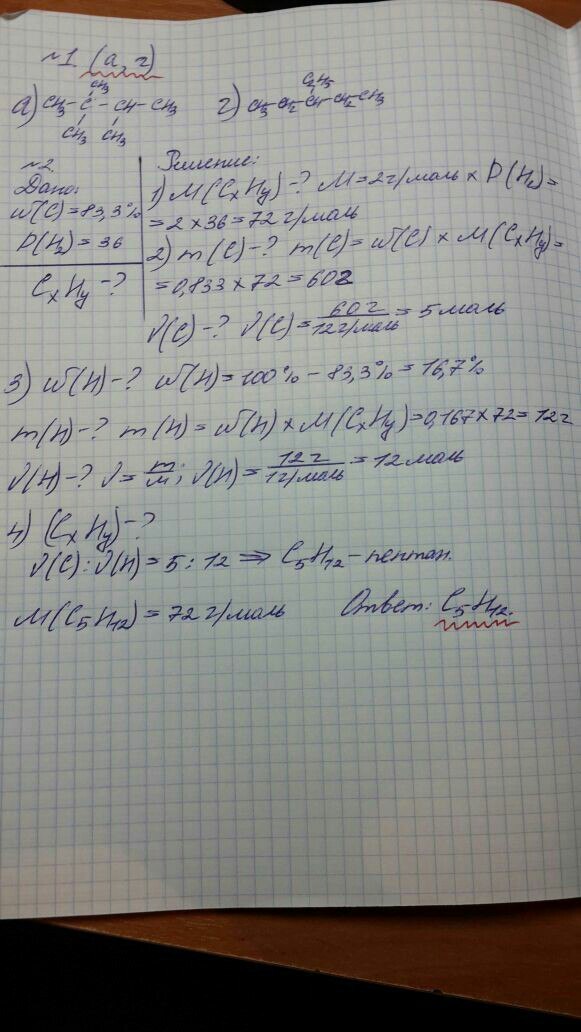 №1 (а, г)
CH₃
C₂H₅
а) CH₃-C-CH-CH₃ г) CH₃-CH₂-CH-CH₂-CH₃
CH₃ CH₃
№2.
Дано:
w(C)=83,3%
D(H₂)=36
CxHy-?
Решение:
1) M(CxHy)-? M=2г/моль × D(H₂)=
=2×36=72г/моль
2) m(C)-? m(C)=w(C) × M(CxHy)=
=0,833×72=60г
ν(C)-? ν(C)= 60г/12г/моль = 5 моль
3) w(H)-? w(H)=100%-83,3%=16,7%
m(H)-? m(H)=w(H)×M(CxHy)=0,167×72=12г
ν(H)-? ν=m/M; ν(H)= 12г/1г/моль = 12 моль
4) (CxHy)-?
ν(C):ν(H)=5:12 ⇒ C₅H₁₂-пентан.
M(C₅H₁₂)=72г/моль Ответ: C₅H₁₂.